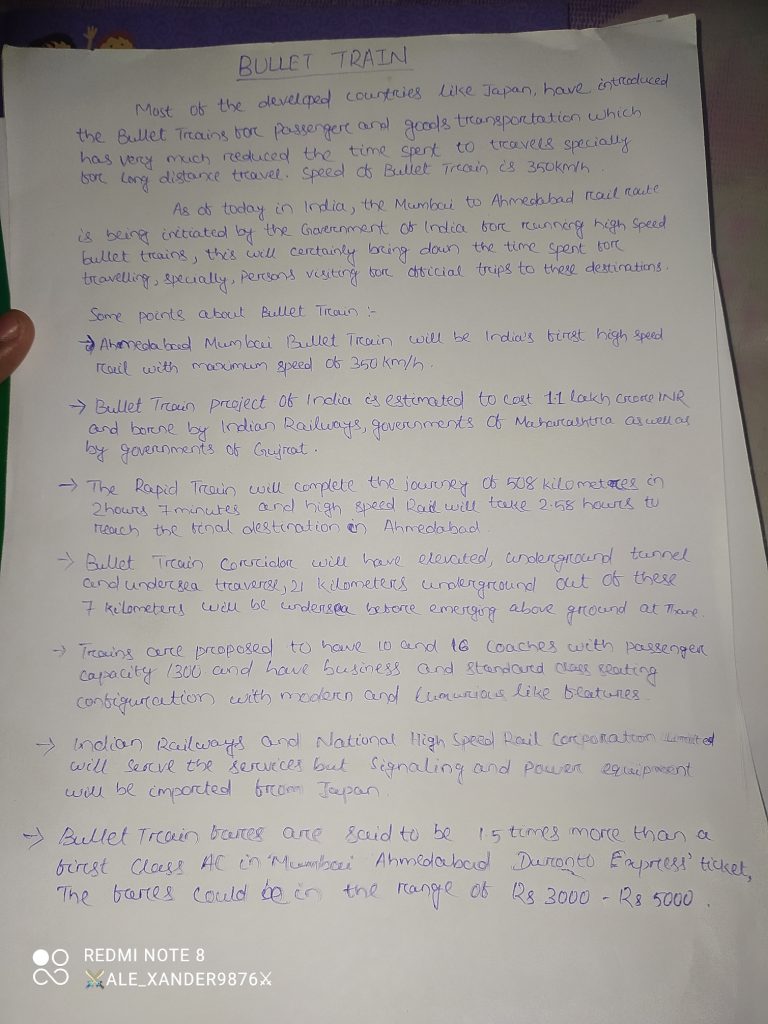 BULLET TRAIN
Most of the developed countries like Japan, have introduced
the Bullet Trains for Passenger and goods transportation which
has very much reduced the time spent to travels specially
for long distance travel. Speed of Bullet Train is 350km/h.
As of today in India, the Mumbai to Ahmedabad rail route
is being initiated by the Government of India for running high speed
bullet trains, this will certainly bring down the time spent for
travelling, specially, persons visiting for official trips to these destinations.
Some points about Bullet Train :-
→ Ahmedabad Mumbai Bullet Train will be India's first high speed
rail with maximum speed of 350 km/h.
→ Bullet Train project of India is estimated to cost 1.1 lakh crore INR
and borne by Indian Railways, governments of Maharashtra as well as
by governments of Gujrat.
→ The Rapid Train will complete the journey of 508 kilometres in
2hours 7minutes and high speed Rail will take 2.58 hours to
reach the final destination in Ahmedabad.
→ Bullet Train Corridor will have elevated, underground tunnel
and undersea traverse, 21 kilometers underground out of these
7 kilometers will be undersea before emerging above ground at Thane.
→ Trains are proposed to have 10 and 16 coaches with passenger
capacity 1300 and have business and standard class seating
configuration with modern and luxurious like features.
→ Indian Railways and National High Speed Rail Corporation Limited
will serve the services but Signaling and power equipment
will be imported from Japan.
→ Bullet Train fares are said to be 1.5 times more than a
first class AC in 'Mumbai Ahmedabad Duronto Express' ticket,
The fares could be in the range of Rs 3000 - Rs 5000.
REDMI NOTE 8
⚔ALE_XANDER9876⚔